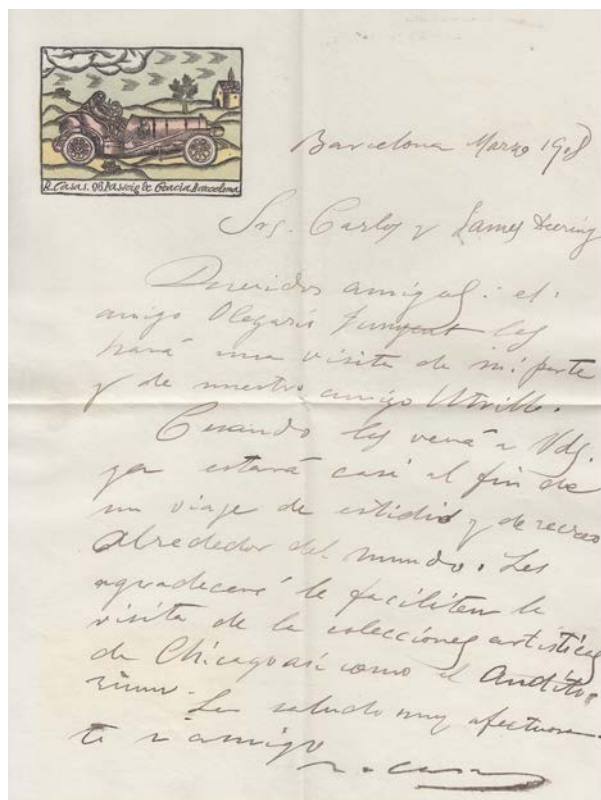 R. Casas. 96 Passeig de Gracia. Barcelona
Barcelona Marzo 1908
Srs. Carlos y James Deering
Queridos amigos: el
amigo Olegario Junyent les
hará una visita de mi parte
y de nuestro amigo Utrillo.
Cuando les verá a Vds.
ya estará casi al fin de
un viaje de estidio y de recreo
alrededor del mundo. Les
agradeceré le faciliten la
visita de la colecciones artísticas
de Chicago así como el Audito-
rium.
Les saluda muy afectuosamen-
te s amigo
R. Casas